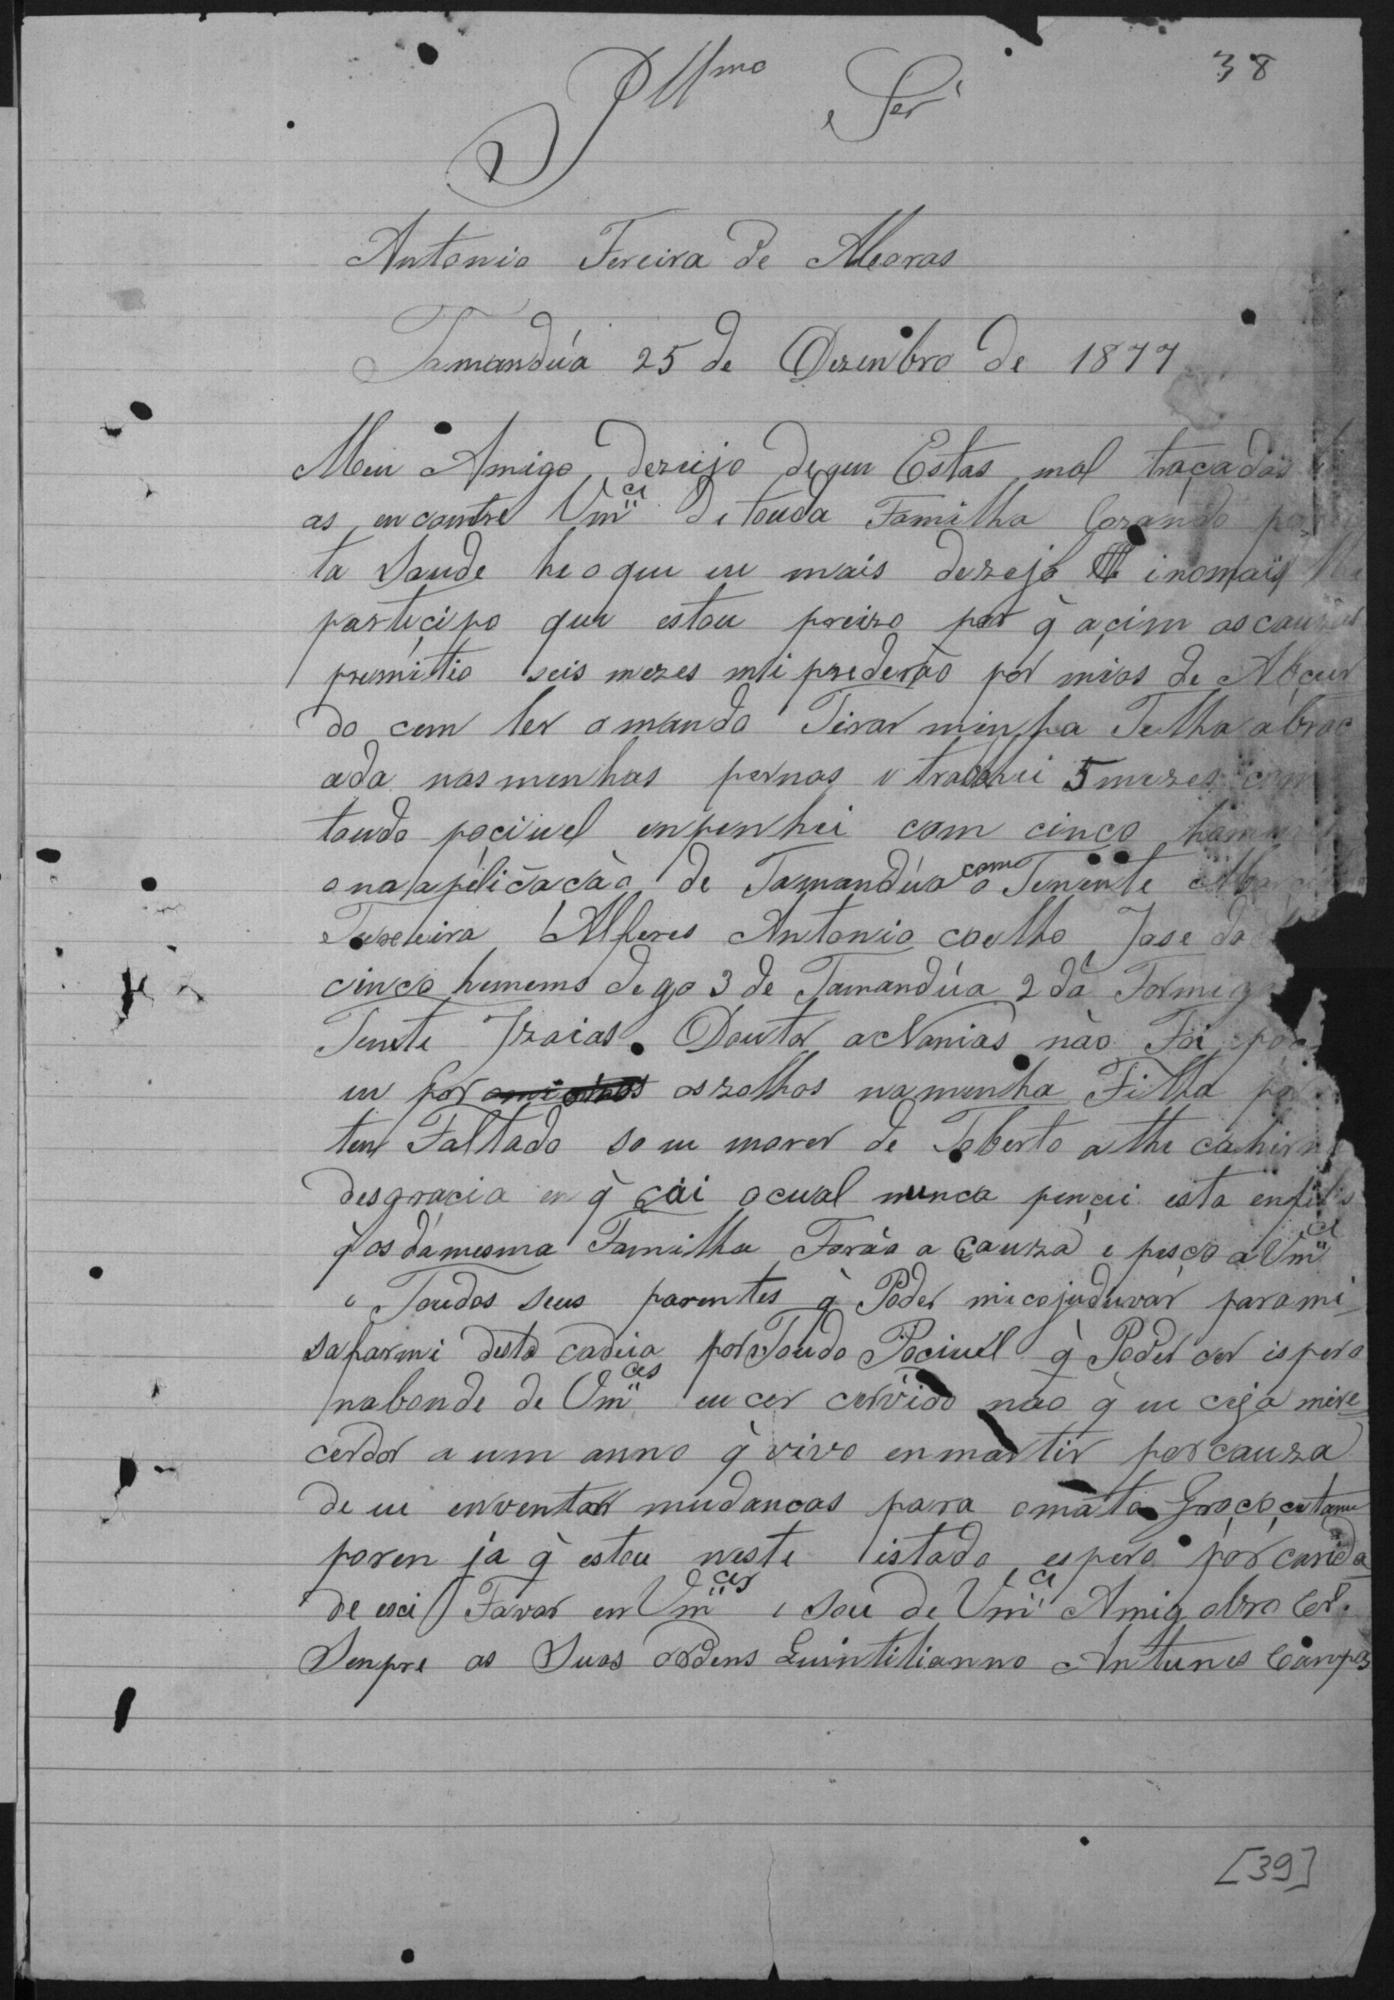 38
Illmo Ser
Antonio Fereira de Moras
Tamandúa 25 de Dezenbro de 1877
Meu Amigo dezeijo dequi Estas mal traçadas
as encontre Vmce De touda Familha Gozando
ta Saude he o que eu mais dezejo inomais
participo que estou preizo por q̀ açim as cauzas
premitio seis mezes mi prederão por meios de Abçur
do cem ler o mando Tirar minha Felha abrac
ada nas minhas pernas e trabalhei 5 mezes com
toudo pociuel enpenhei com cinco
ona apéliçacão de Tamandúa com o Tenente
Texeira Alferes Antonio coelho Jose
cinco humems digo 3 de Tamandúa 2 da Formiga
Tenete Izaias. Doutor aNanias não Foi
eu por os zolhos na minha Filha
tem Faltado so eu morer de Toberto athe cahir
desgracia en q̀ cai ocual nunca pencei esta
q̀ os dámesma Familha Forão a cauza e pesço a Vmce
e Toudos seus parentes q̀ Poder micojuduvár para mi
safarmi desta cadeia por Toudo Pociuel q̀ Poder cer ispero
nabonde de Vmces eu cer cervido não q̀ eu ceja mere
cerdor a um anno q̀ vivo en martir por cauza
de eu enventar mudancas para o mato Groço
poren já q̀ estou neste istado espero pór carida
de esci Favor en Vmces e Sou de Vmce Amig obro Cer.
Senpre as Suas ordens Quintilianno Antunes Campos
[39]